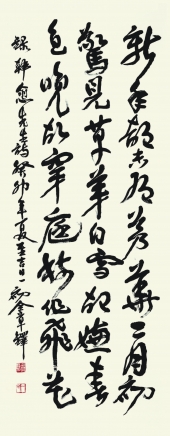 新年都未有芳華二月初
驚見草芽白雪却嫌春
色晚故穿庭樹作飛花
錄韓愈先生詩癸卯年夏至吉日